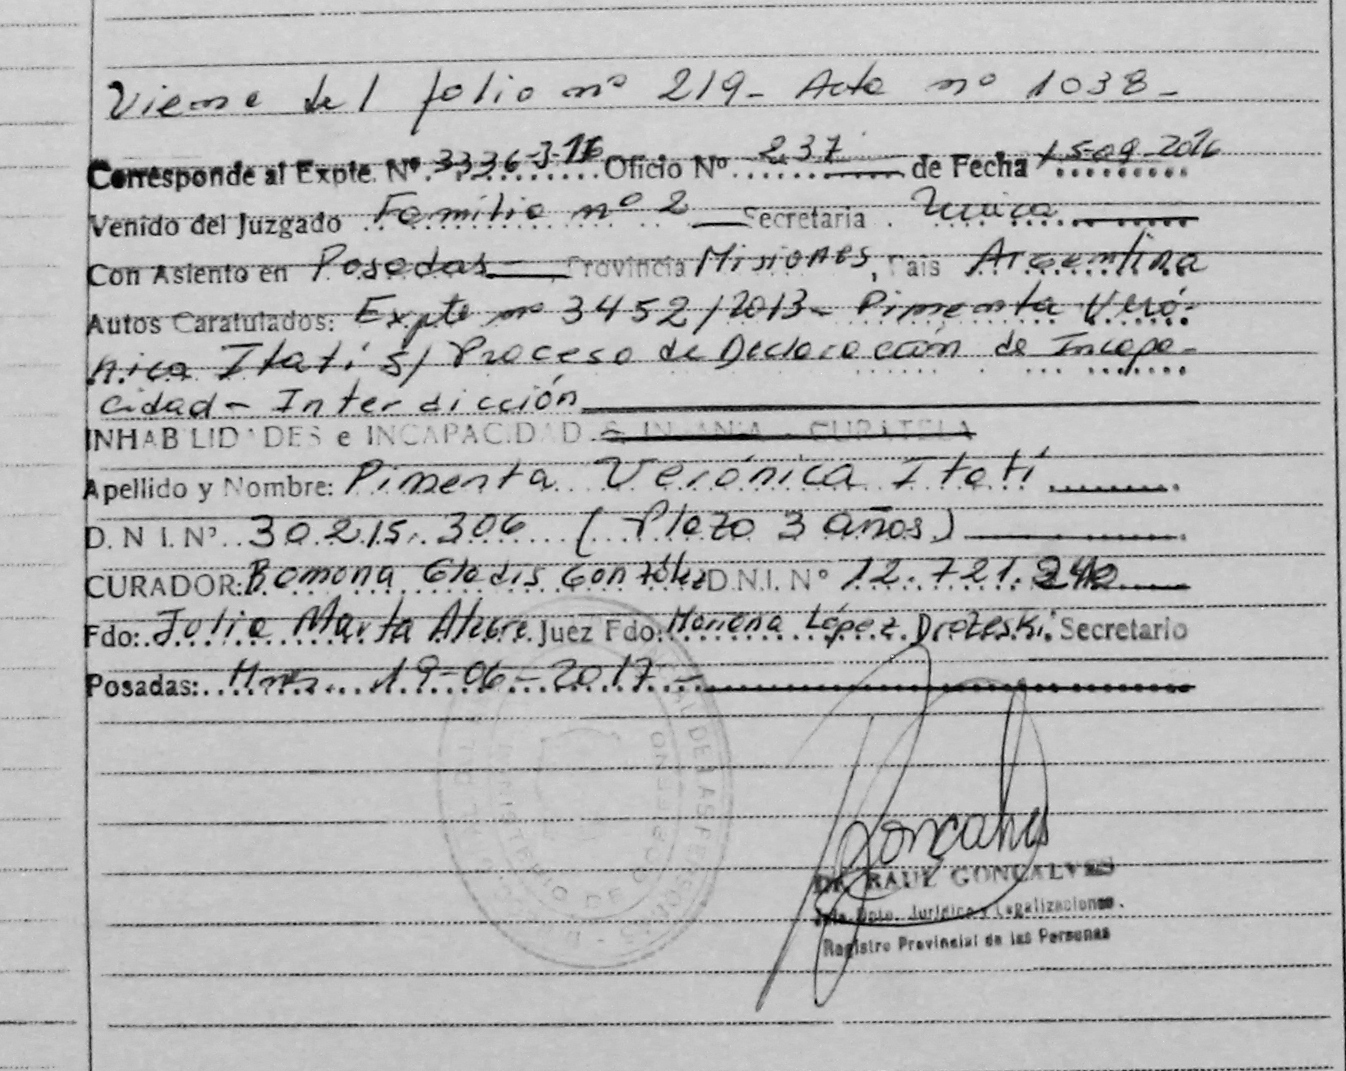 Viene del folio nº 219- Acta nº 1038-
Corresponde al Expte. Nº 3336-J-16 Oficio Nº 237 de Fecha 15-09-2016
Venido del Juzgado Familia nº 2 Secretaria Unica
Con Asiento en Posadas Provincia Misiones, Pais Argentina
Autos Caratulados: Expte nº 3452/2013- Pimenta Veró-
nica Itatí S/ Proceso de Declaración de Incapa-
cidad - Interdicción
INHABILIDADES e INCAPACIDAD S. INSANIA - CURATELA
Apellido y Nombre: Pimenta Verónica Itatí
D.N.I. Nº 30.215.306 (Plazo 3 años)
CURADOR: Ramona Gladis González D.N.I. Nº 12.721.
Fdo: Julia Marta Alegre Juez Fdo: Mariana López Secretario
Posadas: Mnes. 19-06-2017-
Goncalves
DR. RAUL GONCALVES
Jefe Dpto. Jurídico y Legalizaciones
Registro Provincial de las Personas
MINISTERIO DE GOBIERNO
DE LAS PERSONAS